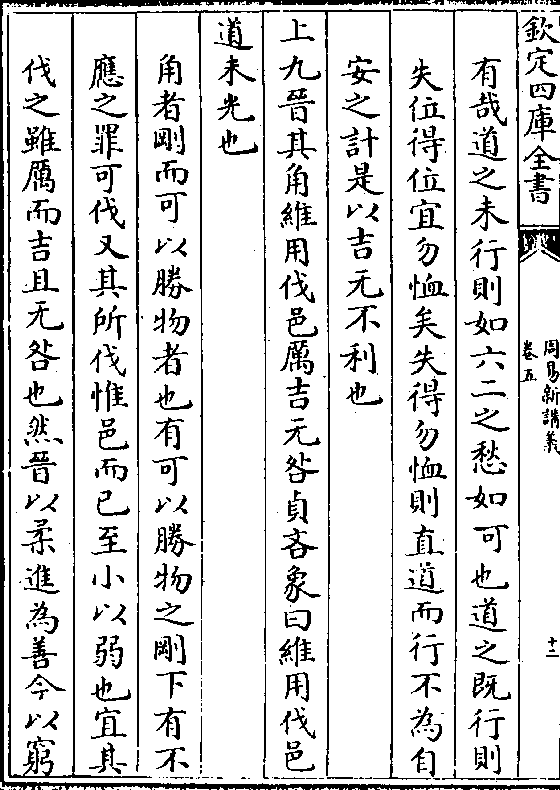 欽定四庫全書
周易新講義
卷五
十二
有哉道之未行則如六二之愁如可也道之既行則
失位得位宜勿恤矣失得勿恤則直道而行不為自
安之計是以吉无不利也
上九晉其角維用伐邑厲吉无咎貞吝象曰維用伐邑
道未光也
角者剛而可以勝物者也有可以勝物之剛下有不
應之罪可伐又其所伐惟邑而已至小以弱也宜其
伐之雖厲而吉且无咎也然晉以柔進為善今以窮